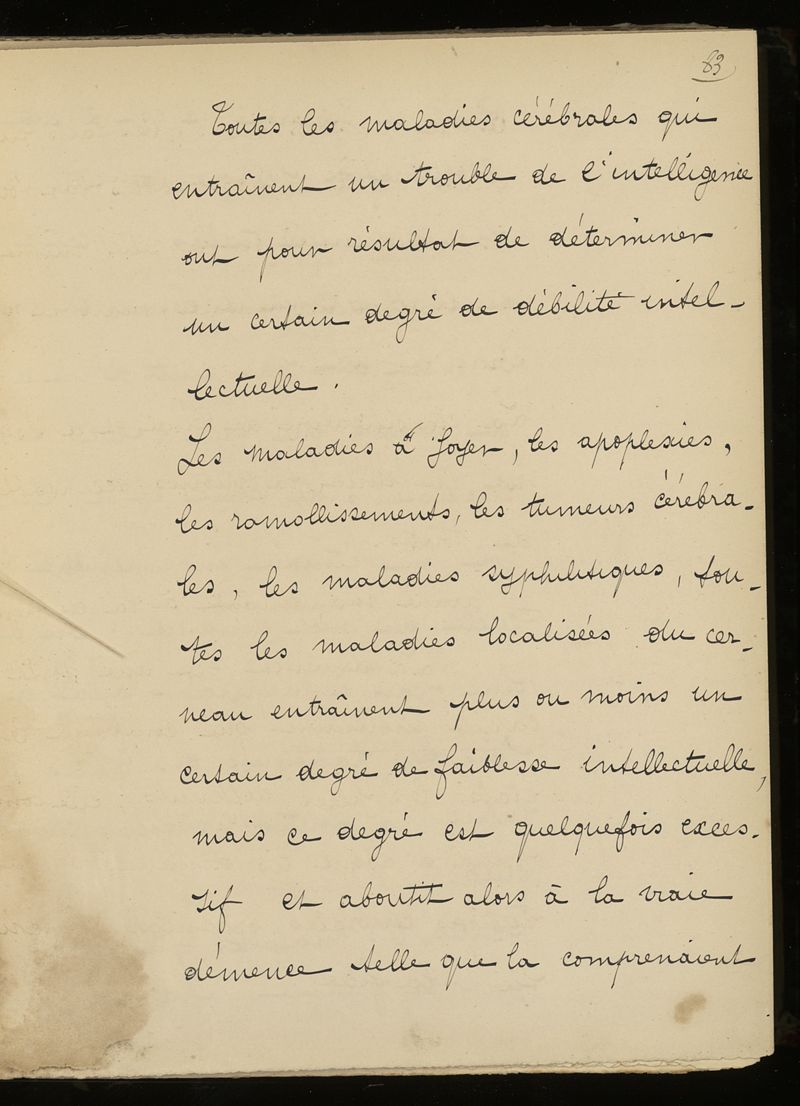 83
Toutes les maladies cérébrales qui
entraînent un trouble de l'intelligence
ont pour résultat de déterminer
un certain degré de débilité intel-
lectuelle.
Les maladies à foyer, les apoplexies,
les ramollissements, les tumeurs cérébra-
les, les maladies syphilitiques, tou-
tes les maladies localisées du cer-
veau entraînent plus ou moins un
certain degré de faiblesse intellectuelle,
mais ce degré est quelquefois exces-
sif et aboutit alors à la vraie
démence telle que la comprenaient